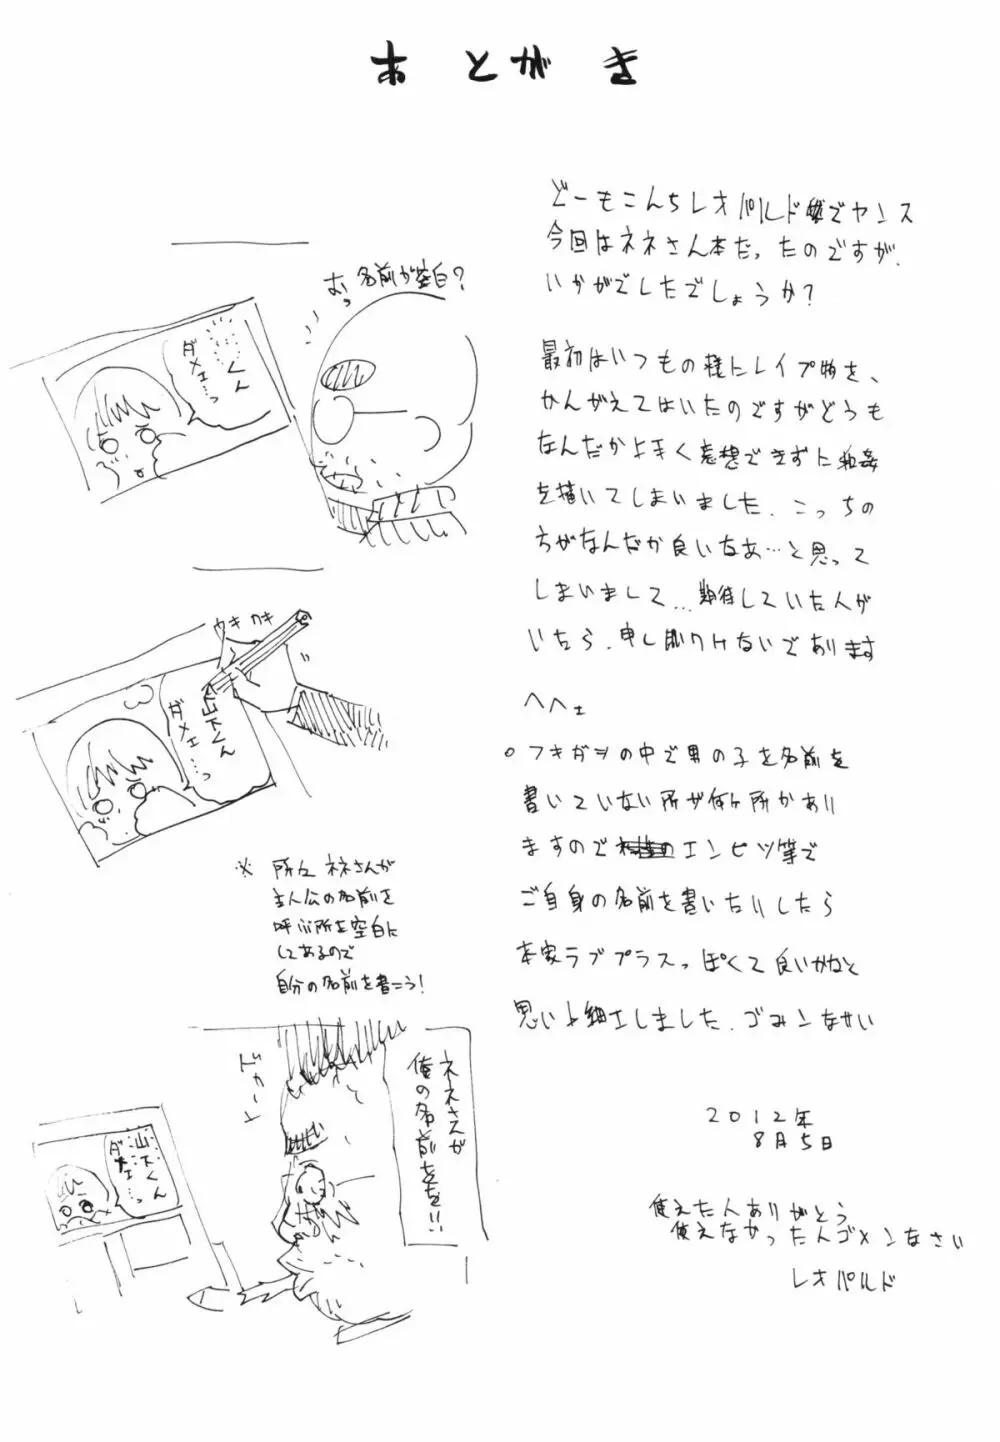 あとがき
どーもこんちレオパルドでヤンス
今回はネネさん本だったのですが、
いかがでしたでしょうか?
最初はいつもの様にレイプ物を、
かんがえてはいたのですがどうも
なんだか上手く妄想できずに和姦
を描いてしまいました、こっちの
方がなんだか良いなあ…と思って
しまいまして…期待していた人が
いたら、申し訳ナイであります
へへェ
○フキダシの中で男の子を名前を
書いていない所が何ヶ所かあり
ますのでエンピツ等で
ご自身の名前を書いたりしたら
本家ラブプラスっぽくて良いかなと
思い小細工しました、ゴメンなサい
2012年
8月5日
使えた人ありがとう
使えなかった人ゴメンなさい
レオパルド
むっ 名前が空白?
くん
ダメェ…っ
カキ カキ
山下くん
ダメェ…っ
※ 所々ネネさんが
主人公の名前を
呼ぶ所を空白に
してあるので
自分の名前を書こう!
ネネさんが
俺の名前をを!!
ドカーン
山下くん
ダメェ…っ